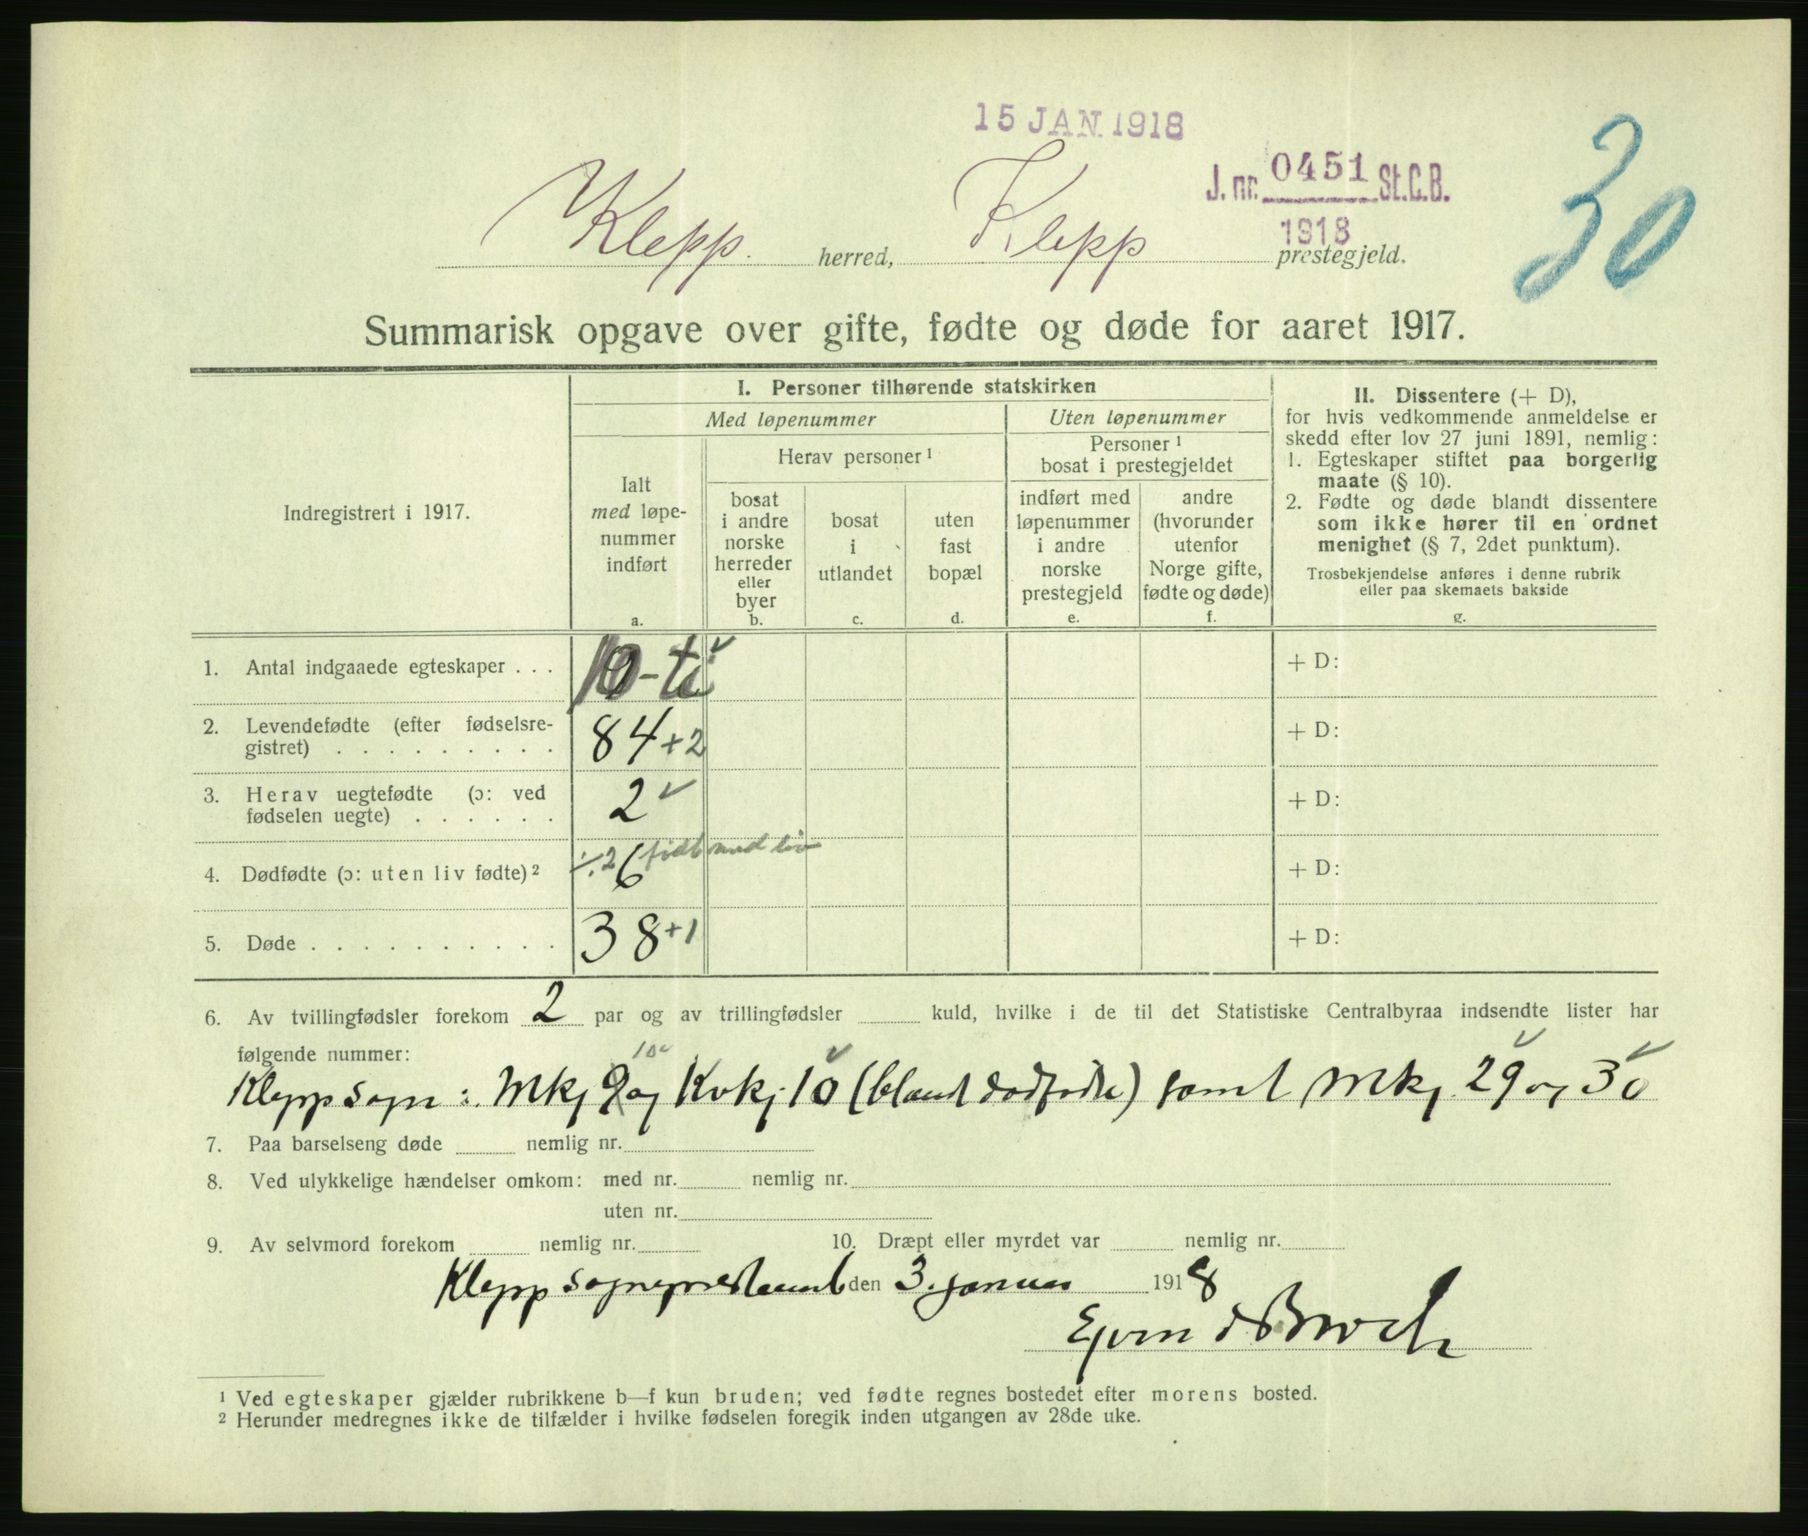 15 JAN. 1918
J. nr. 0451 St.C.B.
1918
30
Klepp. herred, Klepp prestegjeld.
Summarisk opgave over gifte, fødte og døde for aaret 1917.
Indregistrert i 1917.
I. Personer tilhørende statskirken
Med løpenummer
Uten løpenummer
Ialt
med løpe-
nummer
indført
a.
Herav personer ¹
bosat
i andre
norske
herreder
eller
byer
b.
bosat
i
utlandet
c.
uten
fast
bopæl
d.
Personer ¹
bosat i prestegjeldet
indført med
løpenummer
i andre
norske
prestegjeld
e.
andre
(hvorunder
utenfor
Norge gifte,
fødte og døde)
f.
II. Dissentere (+ D),
for hvis vedkommende anmeldelse er
skedd efter lov 27 juni 1891, nemlig:
1. Egteskaper stiftet paa borgerlig
maate (§ 10).
2. Fødte og døde blandt dissentere
som ikke hører til en ordnet
menighet (§ 7, 2det punktum).
Trosbekjendelse anføres i denne rubrik
eller paa skemaets bakside
g.
1. Antal indgaaede egteskaper . . . 10 - ti ✓ + D:
2. Levendefødte (efter fødselsre-
gistret) . . . . . . . . . 84 + 2 + D:
3. Herav uegtefødte (ɔ: ved
fødselen uegte) . . . . . . 2 ✓ + D:
4. Dødfødte (ɔ: uten liv fødte) ² ÷ 2 6 født med liv + D:
5. Døde . . . . . . . . . . 38 + 1 + D:
6. Av tvillingfødsler forekom 2 par og av trillingfødsler kuld, hvilke i de til det Statistiske Centralbyraa indsendte lister har
følgende nummer:
10 ✓
Klepp sogn: Mkj 9 og Kvkj 10 ✓ (blandt dødfødte) samt Mkj. 29 ✓ og 30 ✓
7. Paa barselseng døde nemlig nr.
8. Ved ulykkelige hændelser omkom: med nr. nemlig nr.
uten nr.
9. Av selvmord forekom nemlig nr. 10. Dræpt eller myrdet var nemlig nr.
Klepp sogneprestembde den 3. januar 1918
Ejvind Broch
¹ Ved egteskaper gjælder rubrikkene b—f kun bruden; ved fødte regnes bostedet efter morens bosted.
² Herunder medregnes ikke de tilfælder i hvilke fødselen foregik inden utgangen av 28de uke.